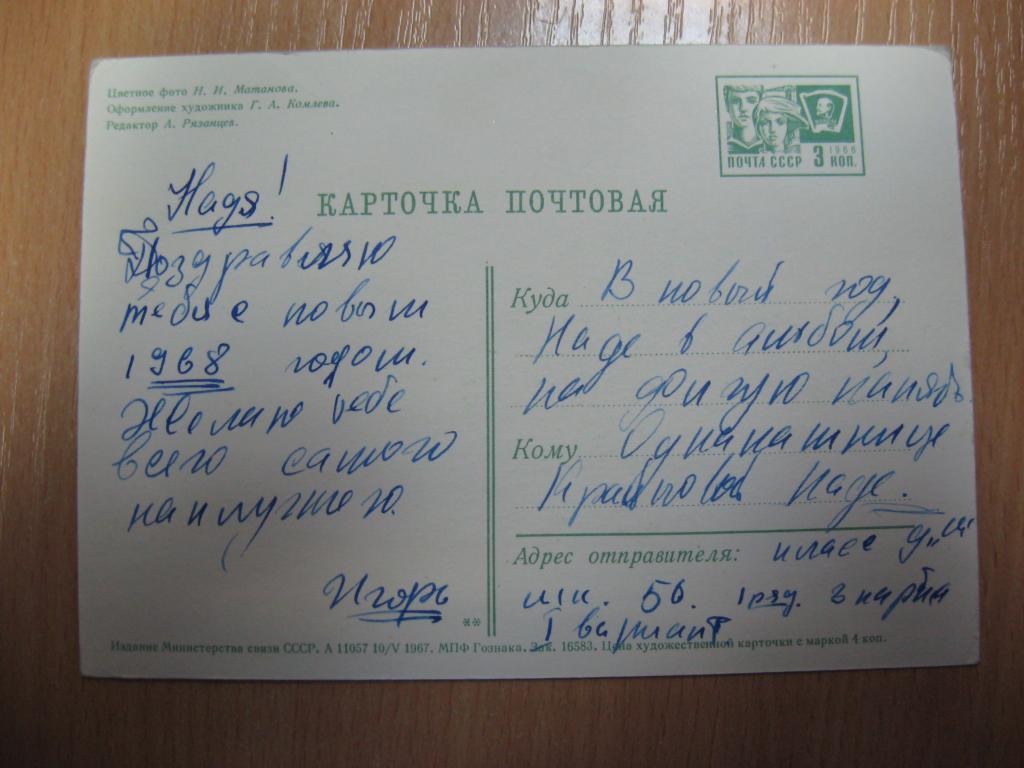 Цветное фото Н. И. Матанова.
Оформление художника Г. А. Комлева.
Редактор А. Рязанцев.
ПОЧТА СССР 3 КОП.
1966
КАРТОЧКА ПОЧТОВАЯ
Надя!
Поздравляю
тебя с новым
1968 годом.
Желаю тебе
всего самого
наилучшего.
Игорь
Куда В новый год,
Наде в альбом,
на долгую память.
Кому
Наде.
Адрес отправителя: класс
шк. 50. 1 ряд. 3 парта
I вариант.
**
Издание Министерства связи СССР. А 11057 10/V 1967. МПФ Гознака. Зак. 16583. Цена художественной карточки с маркой 4 коп.